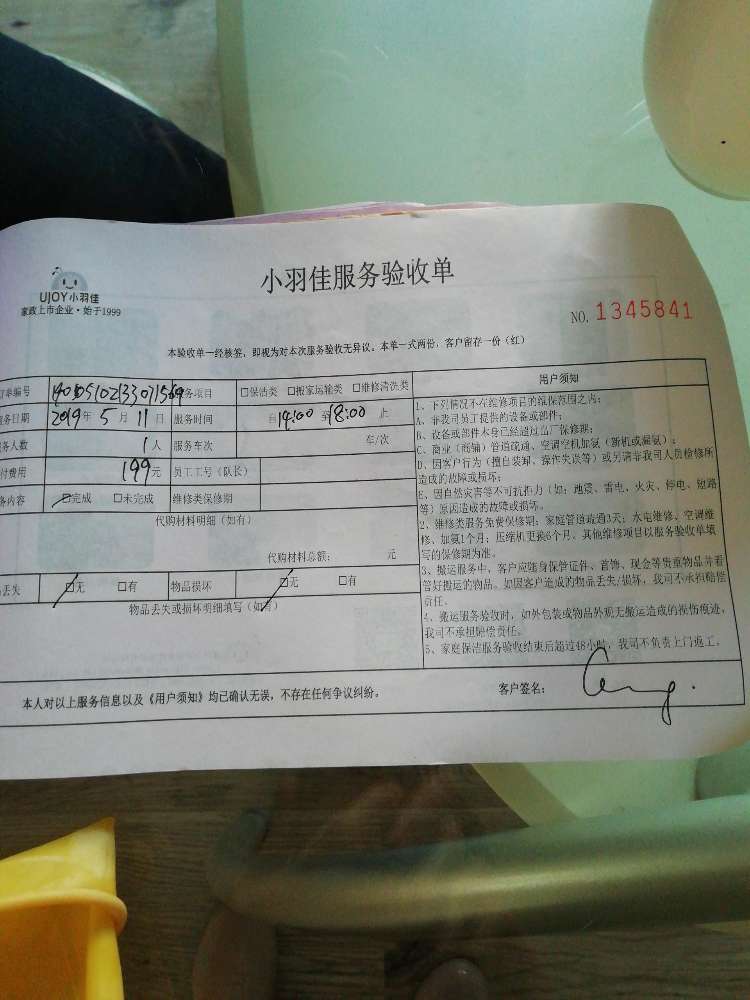 小羽佳服务验收单
UJOY小羽佳
家政上市企业·始于1999
NO. 1345841
本验收单一经核签,即视为对本次服务验收无异议。本单一式两份,客户留存一份(红)
单编号 服务项目 □保洁类 □搬家运输类 □维修清洗类
务日期 2019年 5 月 11 日 服务时间 自14:00 至18:00 止
务人数 1人 服务车次 车/次
付费用 199元 员工工号(队长)
务内容 □完成 □未完成 维修类保修期
代购材料明细(如有)
代购材料总额: 元
丢失 □无 □有 物品损坏 □无 □有
物品丢失或损坏明细填写(如有)
用户须知
1、下列情况不在维修项目的维保范围之内:
A、非我司员工提供的设备或部件;
B、设备或部件本身已经超过出厂保修期;
C、商业(商铺)管道疏通、空调空机加氨(新机或漏氨);
D、因客户行为(擅自装卸、操作失误等)或另请非我司人员检修所
造成的故障或损坏;
E、因自然灾害等不可抗拒力(如:地震、雷电、火灾、停电、短路
等)原因造成的故障或损坏。
2、维修类服务免费保修期:家庭管道疏通3天;水电维修、空调维
修、加氨1个月;压缩机更换6个月。其他维修项目以服务验收单填
写的保修期为准。
3、搬运服务中,客户应随身保管证件、首饰、现金等贵重物品并看
管好搬运的物品。如因客户造成的物品丢失/损坏,我司不承担赔偿
责任。
4、搬运服务验收时,如外包装或物品外观无搬运造成的损伤痕迹,
我司不承担赔偿责任。
5、家庭保洁服务验收结束后超过48小时,我司不负责上门返工。
本人对以上服务信息以及《用户须知》均已确认无误,不存在任何争议纠纷。
客户签名: